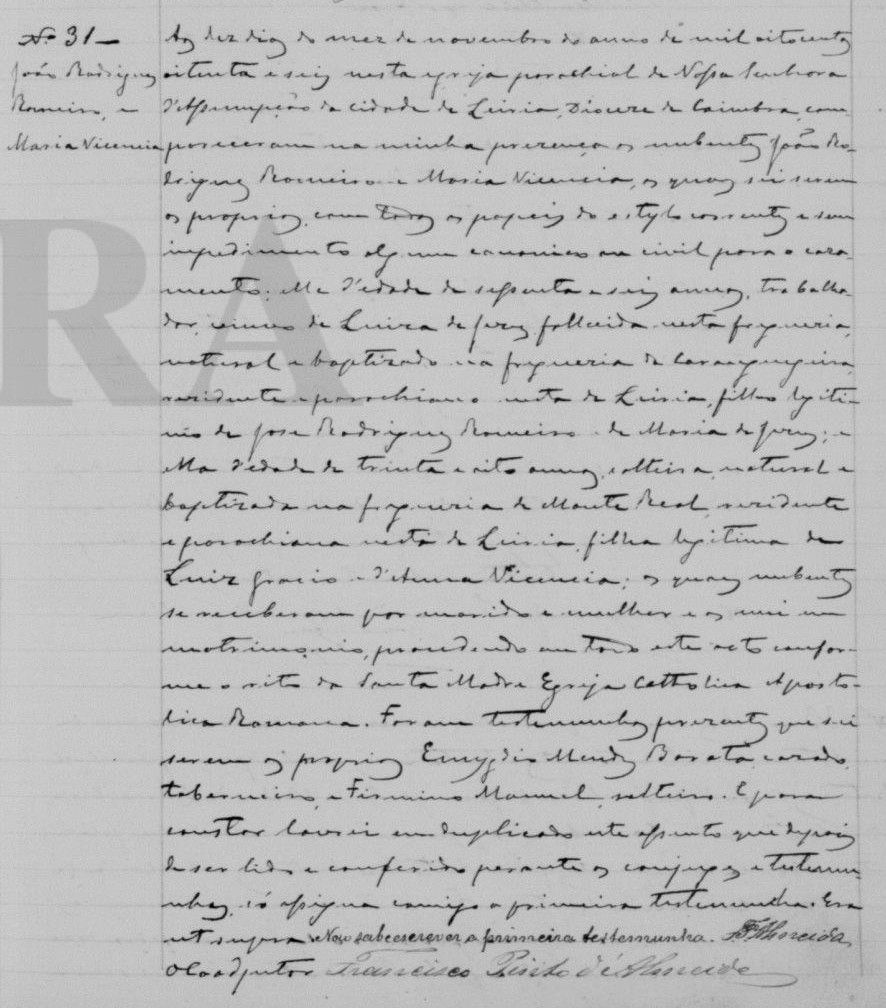 Nº 31 -
João Rodrigues
Romeiro, e
Maria Vicencia
Aos dez dias do mez de novembro do anno de mil oitocentos
oitenta e seis nesta egreja parochial de Nossa Senhora
d'Assumpção da cidade de Leiria, Diocese de Coimbra, com-
pareceram na minha presença os nubentes João Ro-
drigues Romeiro e Maria Vicencia, os quaes sei serem
os proprios, com todos os papeis do estylo correntes e sem
impedimento algum canonico ou civil para o casa-
mento; elle d'edade de sessenta e seis annos, trabalha-
dor, viuvo de Luiza de Jesus fallecida nesta freguezia,
natural e baptizado na freguezia de Carangueijeira
residente e parochiano nesta de Leiria, filho legiti-
mo de José Rodrigues Romeiro e de Maria de Jesus; e
ella d'edade de trinta e oito annos, solteira, natural e
baptizada na freguezia de Monte Real, residente
e parochiana nesta de Leiria, filha legitima de
Luiz Gracio e d'Anna Vicencia; os quaes nubentes
se receberam por marido e mulher e os uni em
matrimonio, procedendo em todo este acto confor-
me o rito da Santa Madre Egreja Catholica Aposto-
lica Romana. Foram testemunhas presentes que sei
serem os proprios Emygdio Mendes Barata, casado,
taberneiro, e Firmino Manuel, solteiro. E para
constar lavrei em duplicado este assento que depois
de ser lido e conferido perante os conjuges e testemu-
nhas, só assigna comigo a primeira testemunha. Era
ut supra. Não sabe escrever a primeira testemunha. Almeida
O Coadjutor Francisco Pinto d'Almeida
RA